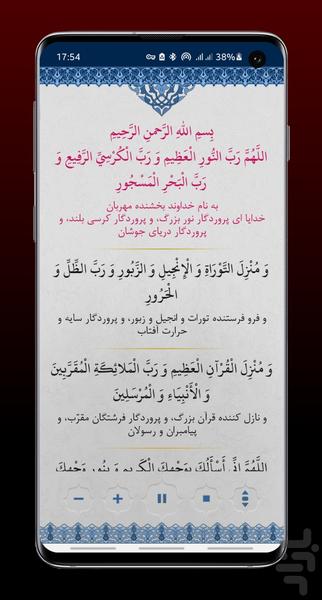 17:54
38%
بِسمِ اللهِ الرَّحمنِ الرَّحِیمِ
اَللَّهُمَّ رَبَّ النُّورِ الْعَظِيمِ وَ رَبَّ الْكُرْسِيِّ الرَّفِيعِ وَ
رَبَّ الْبَحْرِ الْمَسْجُورِ
به نام خداوند بخشنده مهربان
خدایا ای پروردگار نور بزرگ، و پروردگار کرسی بلند، و
پروردگار دریای جوشان
وَ مُنْزِلَ التَّوْرَاةِ وَ الْإِنْجِيلِ وَ الزَّبُورِ وَ رَبَّ الظِّلِّ وَ
الْحَرُورِ
و فرو فرستنده تورات و انجیل و زبور، و پروردگار سایه و
حرارت آفتاب
وَ مُنْزِلَ الْقُرْآنِ الْعَظِيمِ وَ رَبَّ الْمَلَائِكَةِ الْمُقَرَّبِينَ
وَ الْأَنْبِيَاءِ وَ الْمُرْسَلِينَ
و نازل کننده قرآن بزرگ، و پروردگار فرشتگان مقرّب، و
پیامبران و رسولان
اللَّهُمَّ إِنِّي أَسْأَلُكَ بِوَجْهِكَ الْكَرِيمِ وَ بِنُورِ وَجْهِكَ